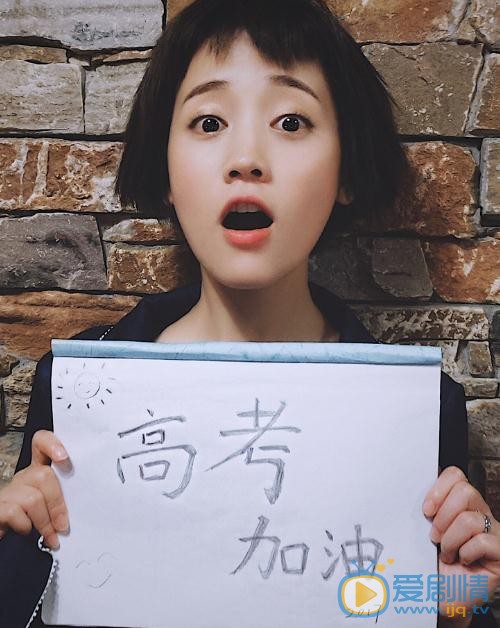 高考
加油
2017
爱剧情
www.ijq.tv